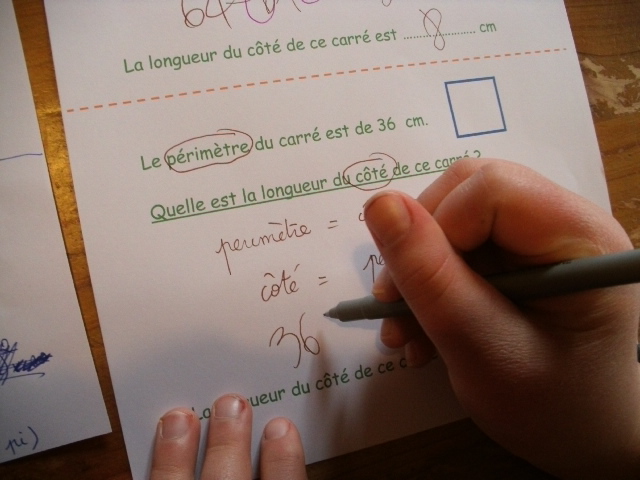 64
La longueur du côté de ce carré est ........8........ cm
Le périmètre du carré est de 36 cm.
Quelle est la longueur du côté de ce carré ?
perimètre =
côté = p
36
La longueur du côté de ce c
pi)